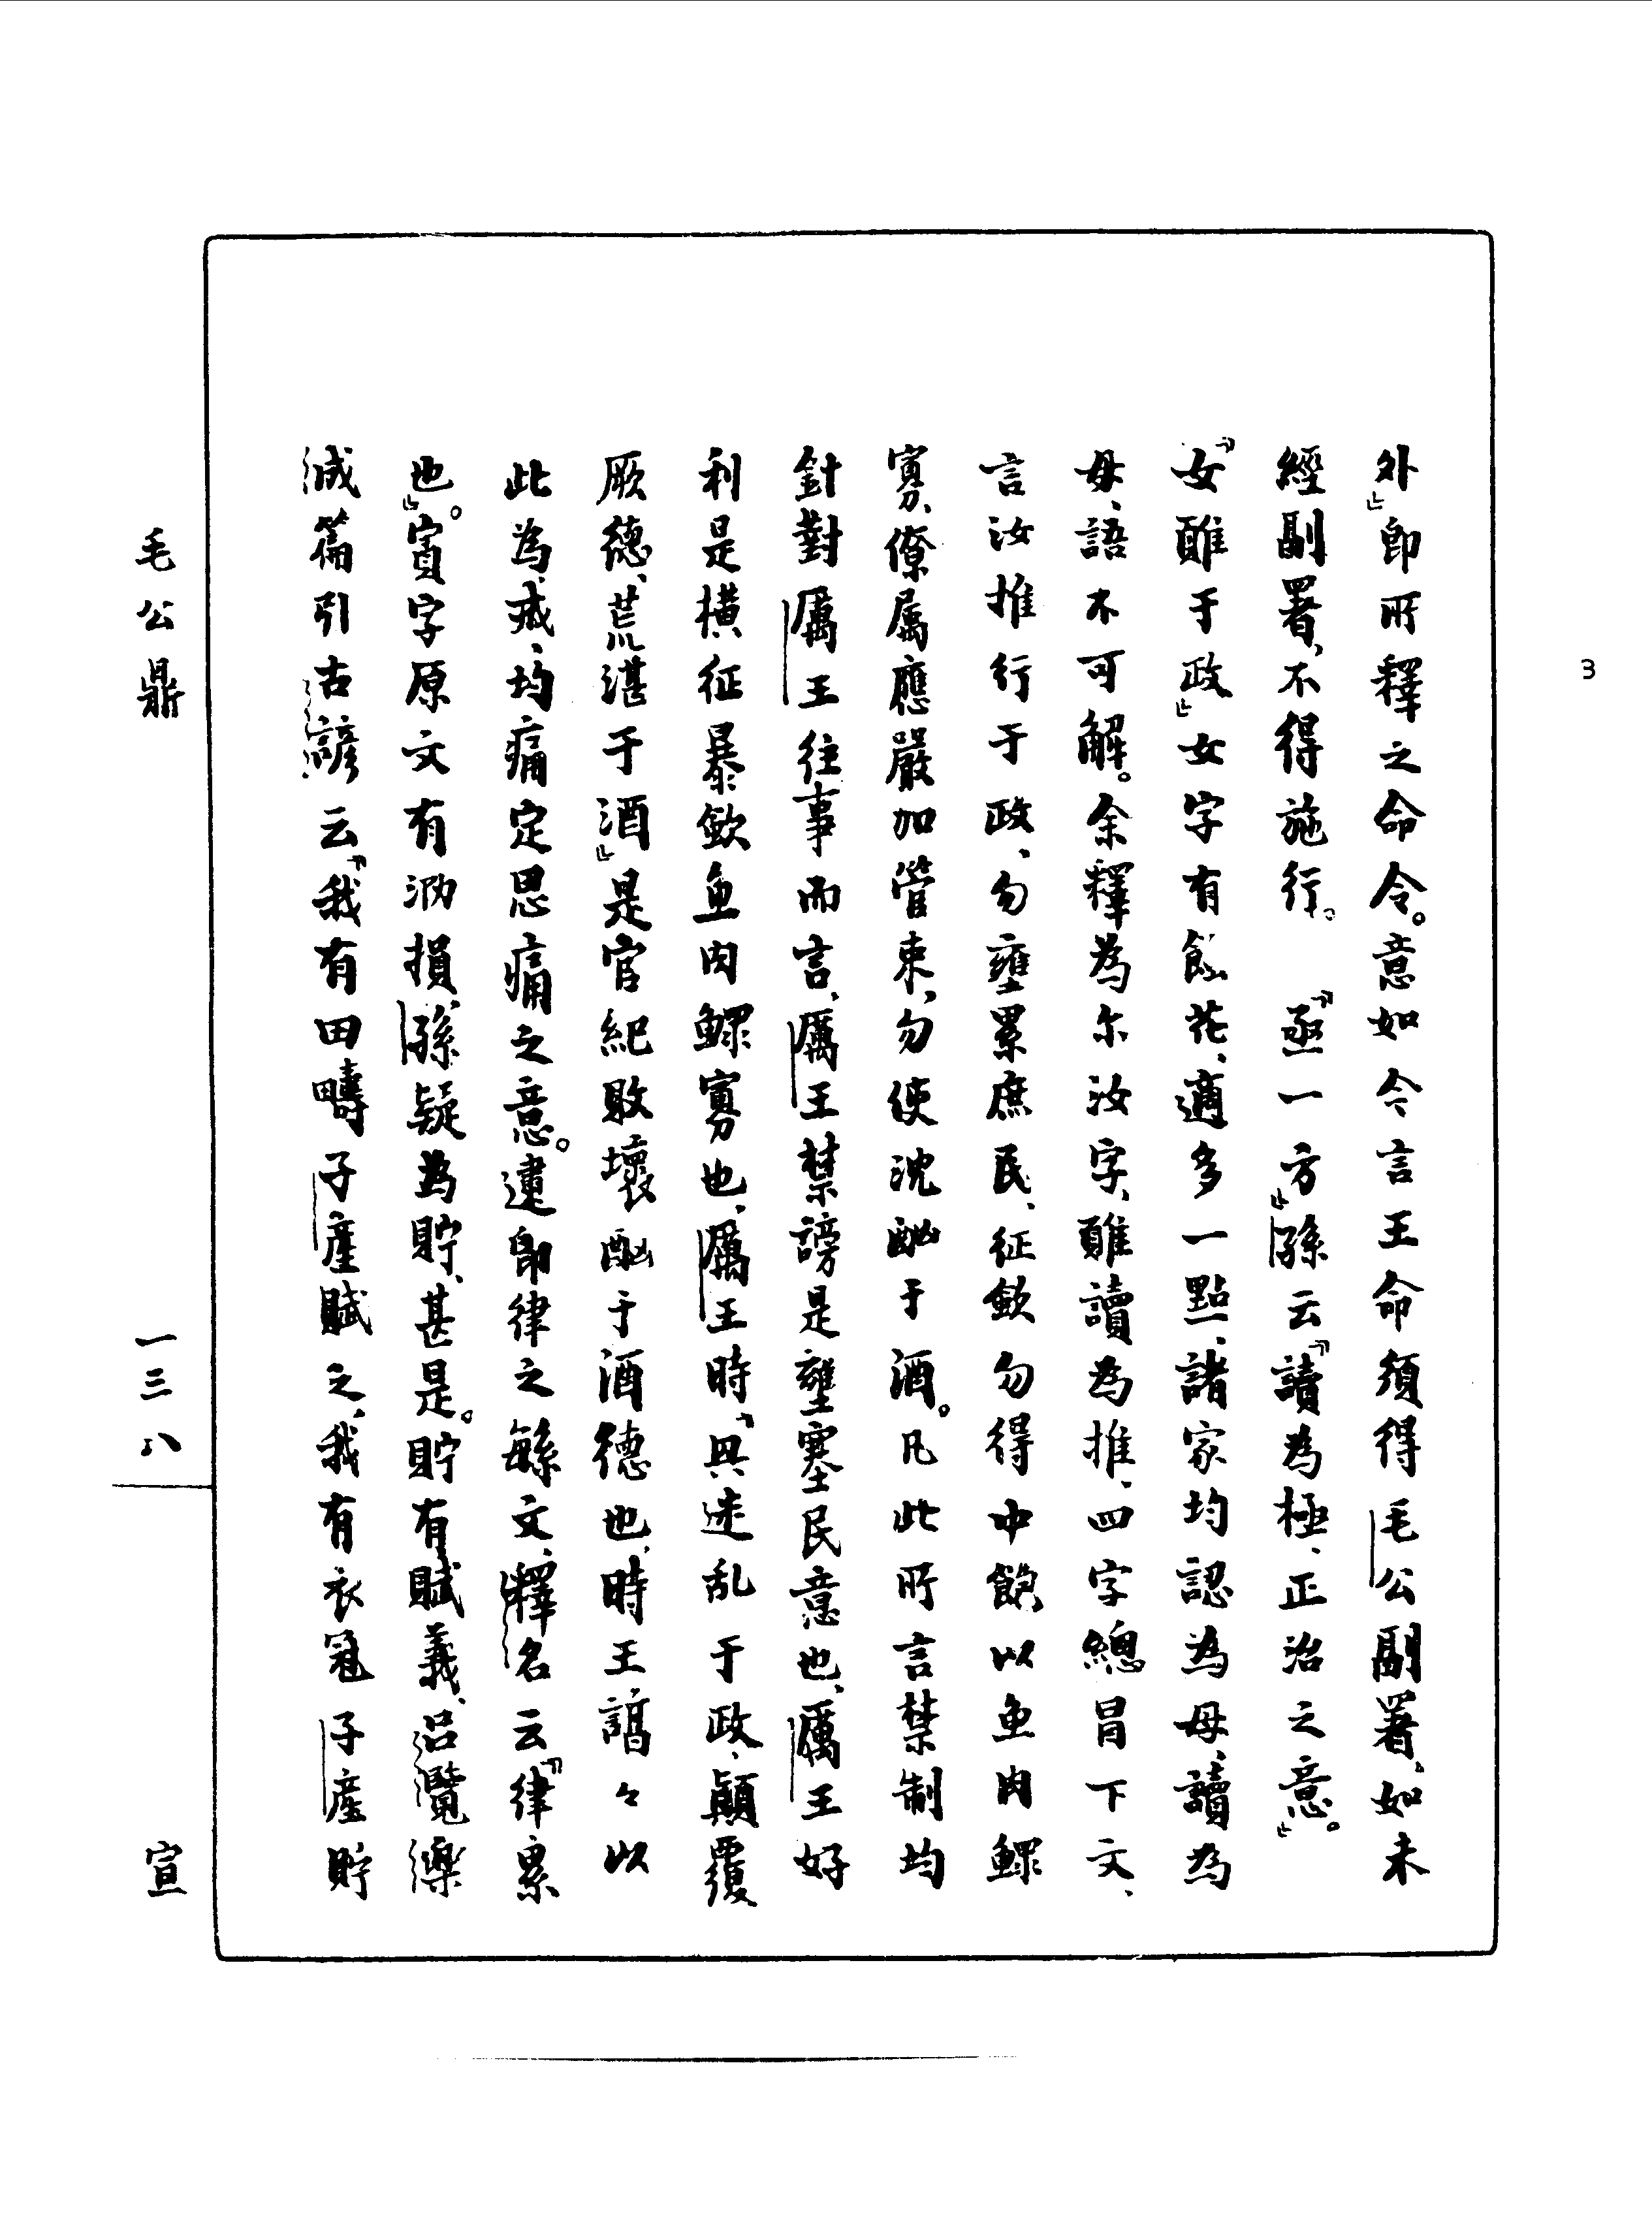 外」即所釋之命令。意如今言王命須得毛公副署、如未
經副署、不得施行。　「亟一方」孫云「讀為極、正治之意。」
「女雝于政」女字有飾花、適多一點、諸家均認為母、讀為
毋、語不可解。余釋為尔汝字、雝讀為推、四字總冒下文、
言汝推行于政、勿壅累庶民、征歛勿得中飽以魚肉鰥
寡、僚属應嚴加管束、勿使沈酗于酒。凡此所言禁制均
針對厲王往事而言、厲王禁謗是壅塞民意也、厲王好
利是橫征暴歛魚肉鰥寡也、厲王時、「興迷乱于政、顛覆
厥德、荒湛于酒」是官紀敗壞酗于酒德也、時王諄々以
此為戒、均痛定思痛之意。逮即律之緐文、釋名云「律累
也」。賓字原文有泐損、孫疑為貯、甚是。貯有賦義、呂覽樂
成篇引古諺云「我有田疇子產賦之、我有衣冠子產貯
毛公鼎
一三八
宣
3